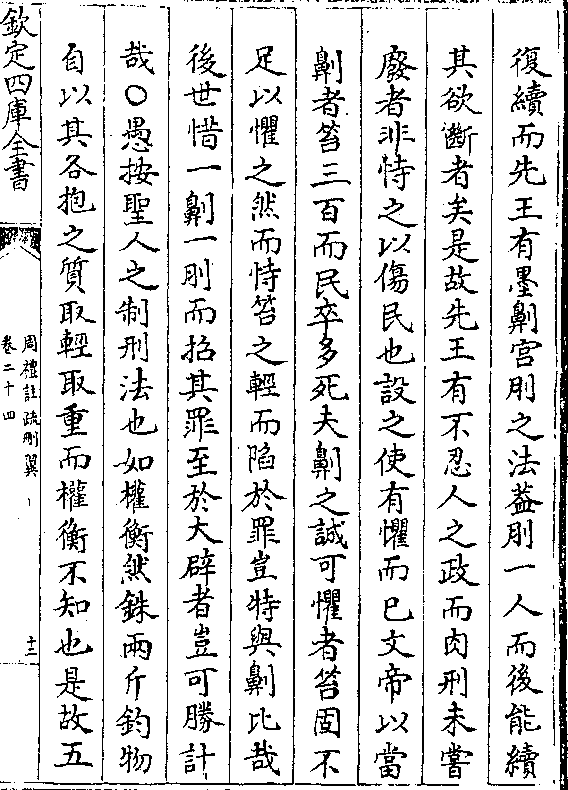 復續而先王有墨劓宮刖之法葢刖一人而後能續
其欲斷者矣是故先王有不忍人之政而肉刑未嘗
廢者非恃之以傷民也設之使有懼而已文帝以當
劓者笞三百而民卒多死夫劓之誠可懼者笞固不
足以懼之然而恃笞之輕而陷於罪豈特與劓比哉
後世惜一劓一刖而招其罪至於大辟者豈可勝計
哉○愚按聖人之制刑法也如權衡然銖兩斤鈞物
自以其各抱之質取輕取重而權衡不知也是故五
欽定四庫全書
周禮註疏刪翼
卷二十四
十三